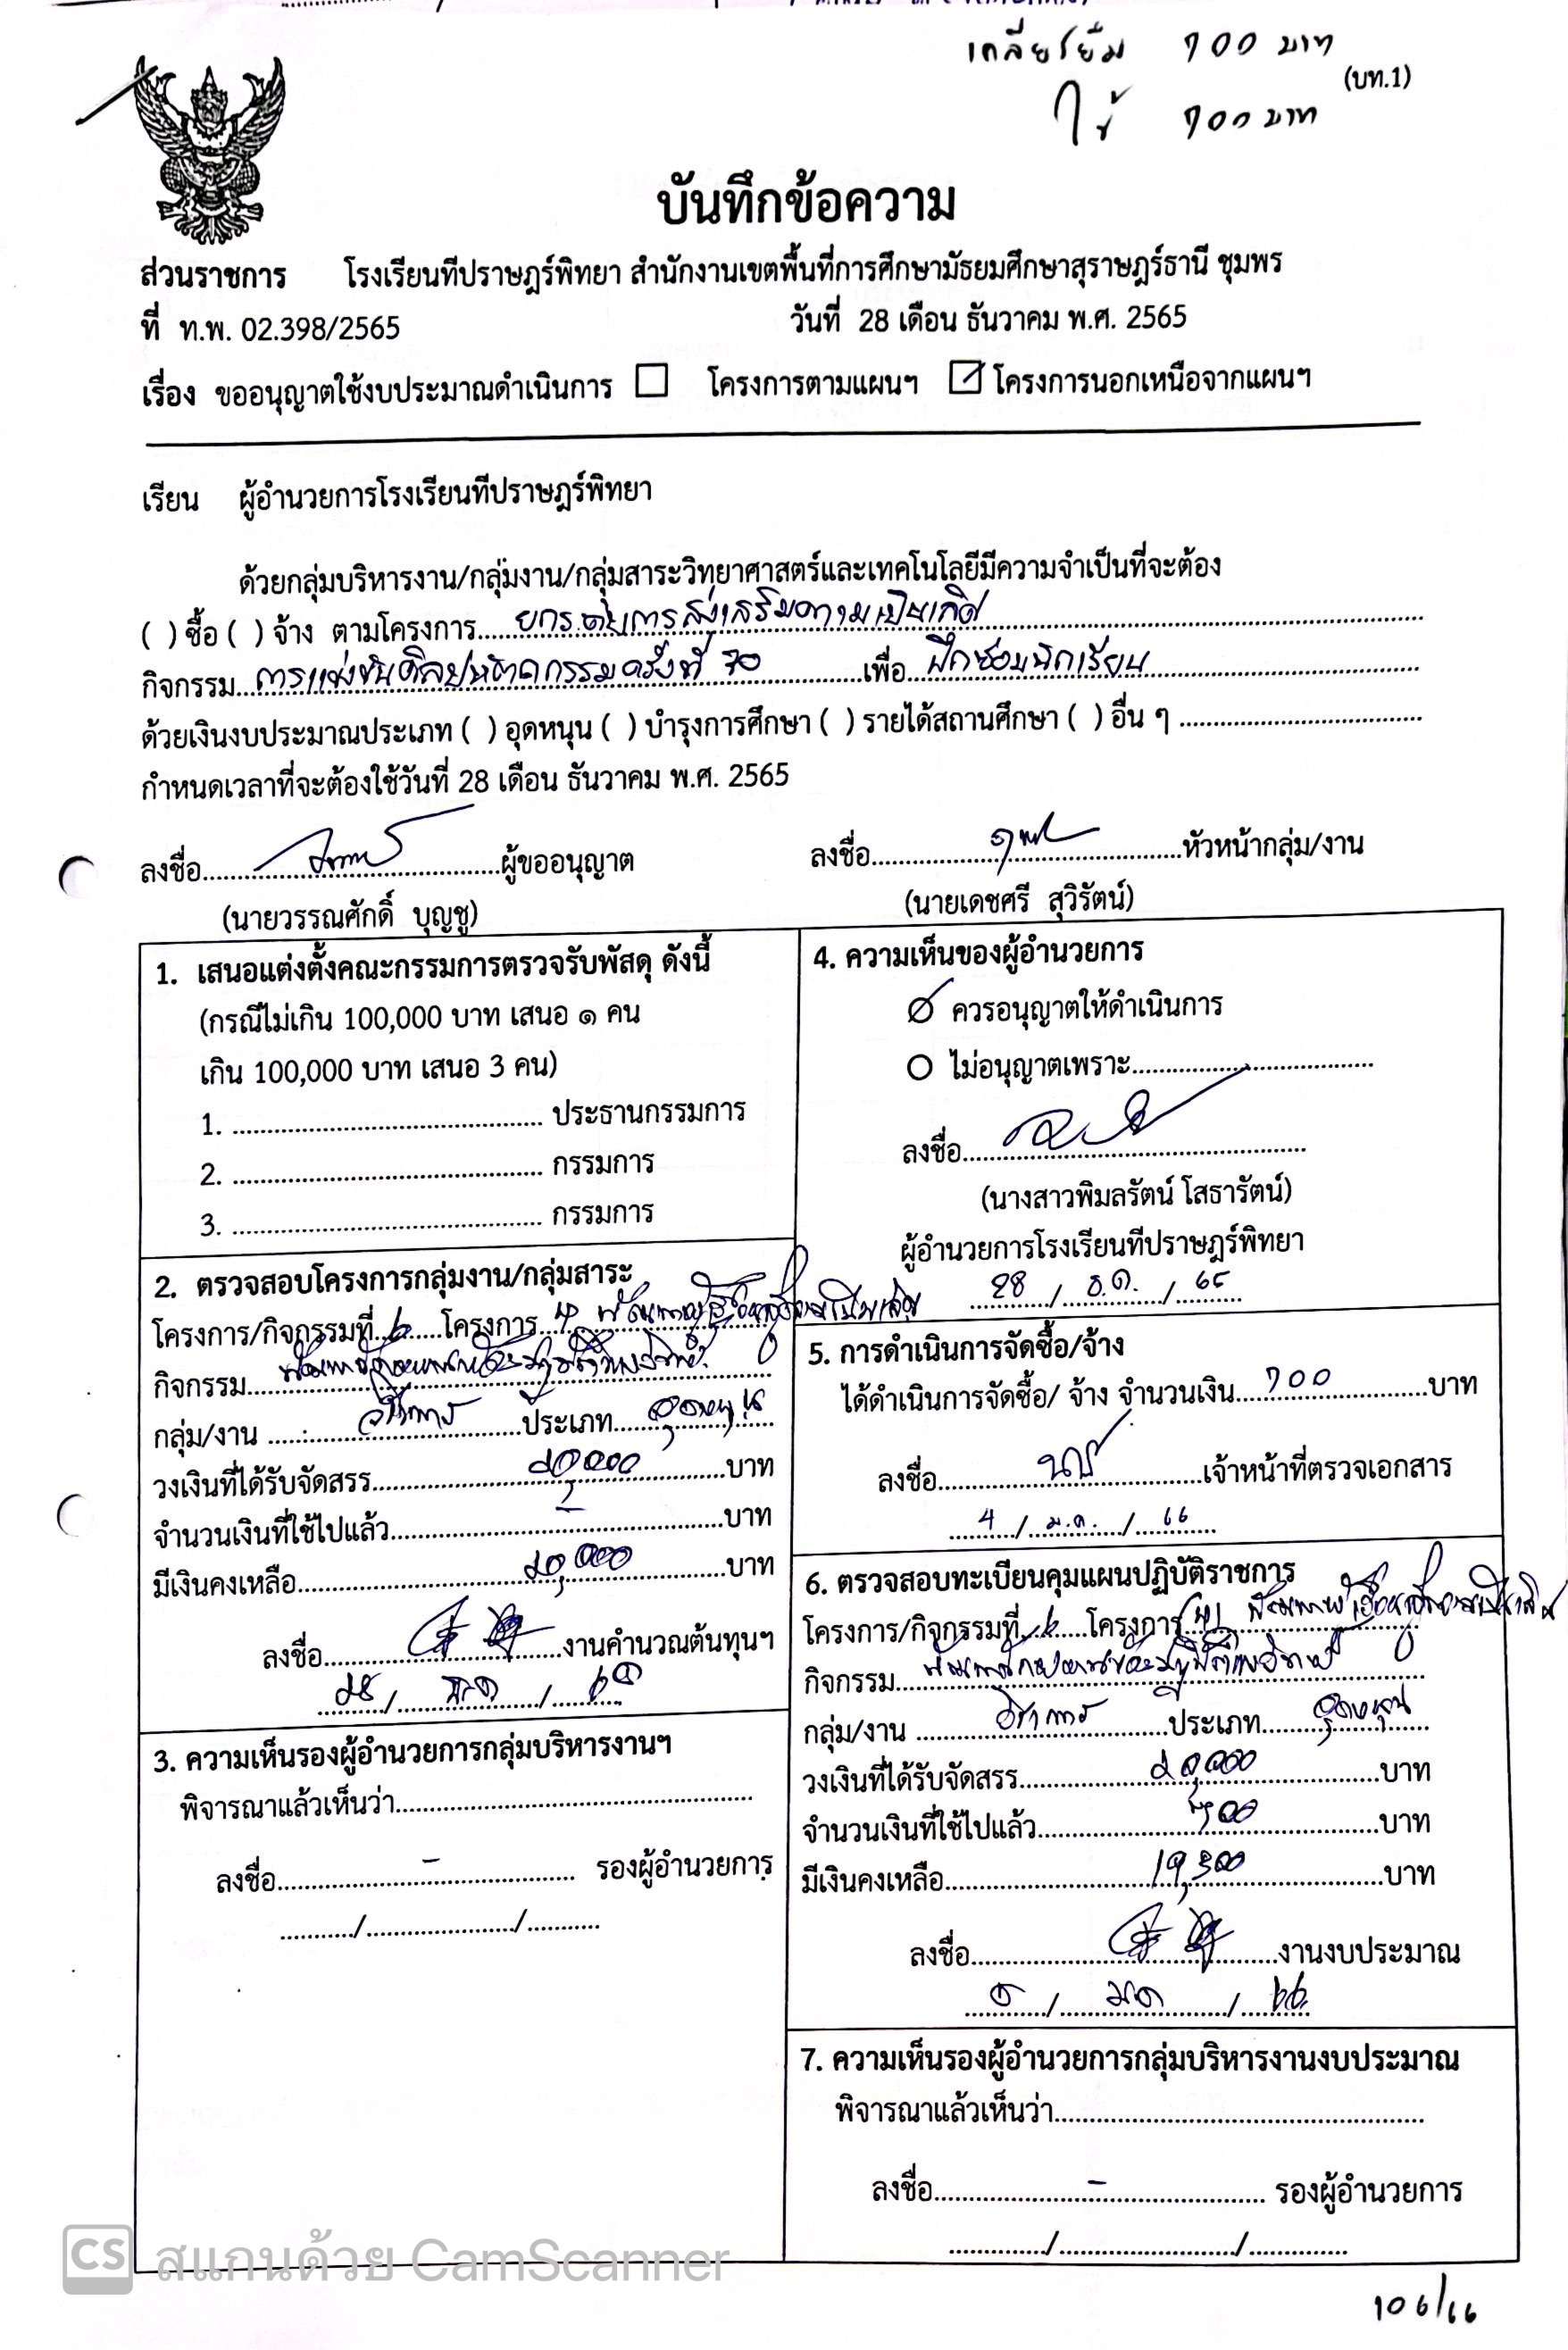 เคลียร์ยืม 700 บาท
(บท.1)
ใช้ 700 บาท
บันทึกข้อความ
ส่วนราชการ โรงเรียนทีปราษฎร์พิทยา สำนักงานเขตพื้นที่การศึกษามัธยมศึกษาสุราษฎร์ธานี ชุมพร
ที่ ท.พ. 02.398/2565 วันที่ 28 เดือน ธันวาคม พ.ศ. 2565
เรื่อง ขออนุญาตใช้งบประมาณดำเนินการ ☐ โครงการตามแผนฯ ☑ โครงการนอกเหนือจากแผนฯ
เรียน ผู้อำนวยการโรงเรียนทีปราษฎร์พิทยา
ด้วยกลุ่มบริหารงาน/กลุ่มงาน/กลุ่มสาระวิทยาศาสตร์และเทคโนโลยีมีความจำเป็นที่จะต้อง
( ) ซื้อ ( ) จ้าง ตามโครงการ ยกระดับการส่งเสริมความเป็นเลิศ
กิจกรรม การแข่งขันศิลปหัตถกรรมครั้งที่ 70 เพื่อ ฝึกซ้อมนักเรียน
ด้วยเงินงบประมาณประเภท ( ) อุดหนุน ( ) บำรุงการศึกษา ( ) รายได้สถานศึกษา ( ) อื่น ๆ
กำหนดเวลาที่จะต้องใช้วันที่ 28 เดือน ธันวาคม พ.ศ. 2565
ลงชื่อ ผู้ขออนุญาต ลงชื่อ หัวหน้ากลุ่ม/งาน
(นายวรรณศักดิ์ บุญชู) (นายเดชศรี สุวิรัตน์)
1. เสนอแต่งตั้งคณะกรรมการตรวจรับพัสดุ ดังนี้
(กรณีไม่เกิน 100,000 บาท เสนอ ๑ คน
เกิน 100,000 บาท เสนอ 3 คน)
1. ประธานกรรมการ
2. กรรมการ
3. กรรมการ
2. ตรวจสอบโครงการกลุ่มงาน/กลุ่มสาระ
โครงการ/กิจกรรมที่ ๖ โครงการ
กิจกรรม
กลุ่ม/งาน วิชาการ ประเภท อุดหนุน
วงเงินที่ได้รับจัดสรร ๒๐,๐๐๐ บาท
จำนวนเงินที่ใช้ไปแล้ว - บาท
มีเงินคงเหลือ ๒๐,๐๐๐ บาท
ลงชื่อ งานคำนวณต้นทุนฯ
๒๘ / ธค / ๖๕
3. ความเห็นรองผู้อำนวยการกลุ่มบริหารงานฯ
พิจารณาแล้วเห็นว่า
ลงชื่อ - รองผู้อำนวยการ
4. ความเห็นของผู้อำนวยการ
ควรอนุญาตให้ดำเนินการ
ไม่อนุญาตเพราะ
ลงชื่อ
(นางสาวพิมลรัตน์ โสธารัตน์)
ผู้อำนวยการโรงเรียนทีปราษฎร์พิทยา
28 / ธ.ค. / 65
5. การดำเนินการจัดซื้อ/จ้าง
ได้ดำเนินการจัดซื้อ/ จ้าง จำนวนเงิน 700 บาท
ลงชื่อ เจ้าหน้าที่ตรวจเอกสาร
4 / ม.ค. / 66
6. ตรวจสอบทะเบียนคุมแผนปฏิบัติราชการ
โครงการ/กิจกรรมที่ ๖ โครงการ
กิจกรรม
กลุ่ม/งาน วิชาการ ประเภท อุดหนุน
วงเงินที่ได้รับจัดสรร ๒๐,๐๐๐ บาท
จำนวนเงินที่ใช้ไปแล้ว 700 บาท
มีเงินคงเหลือ 19,300 บาท
ลงชื่อ งานงบประมาณ
มค / ๖๖
7. ความเห็นรองผู้อำนวยการกลุ่มบริหารงานงบประมาณ
พิจารณาแล้วเห็นว่า
ลงชื่อ - รองผู้อำนวยการ
CS สแกนด้วย CamScanner
106/66